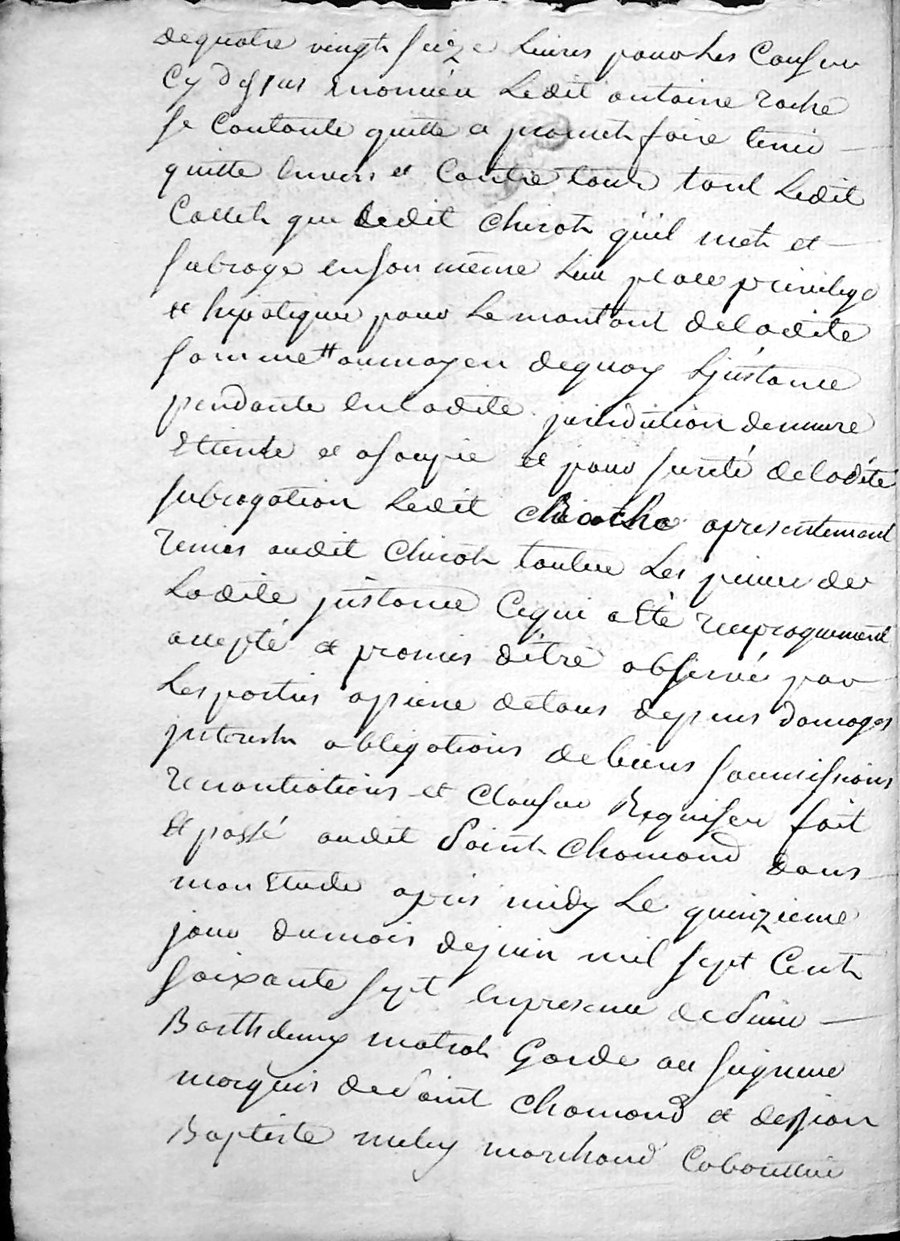 de quatre vingt seize livres pour les causes
cy dessus Enoncées Ledit antoine roche
se contente quitte et promet faire tenir
quitte envers et Contre tous tant Ledit
que Ledit Chirat qu'il met et
subroge en son même lieu place privilege
et hipoteque pour Le montant deladite
somme au moyen dequoy L'jnstance
pendante en ladite jurisdiction demeure
Eteinte et asoupie et pour sureté deladite
subrogation Ledit apresentement
remis audit Chirat toutes Les pieces de
Ladite jnstance Cequi a Eté reciproquement
accepté et promis d'être observé par
Les parties apeine detous depens domages
jnterests obligations de biens soumissions
renontiations et Clauses Requises fait
et passé audit Saint Chamond dans
mon Etude apres midy Le quinzieme
jour dumois dejuin mil sept Cent
soixante sept en presence de Sieur
Barthelemy matrat Garde au seigneur
marquis de Saint Chamond et de Jean
Baptiste marchand Cabaretier